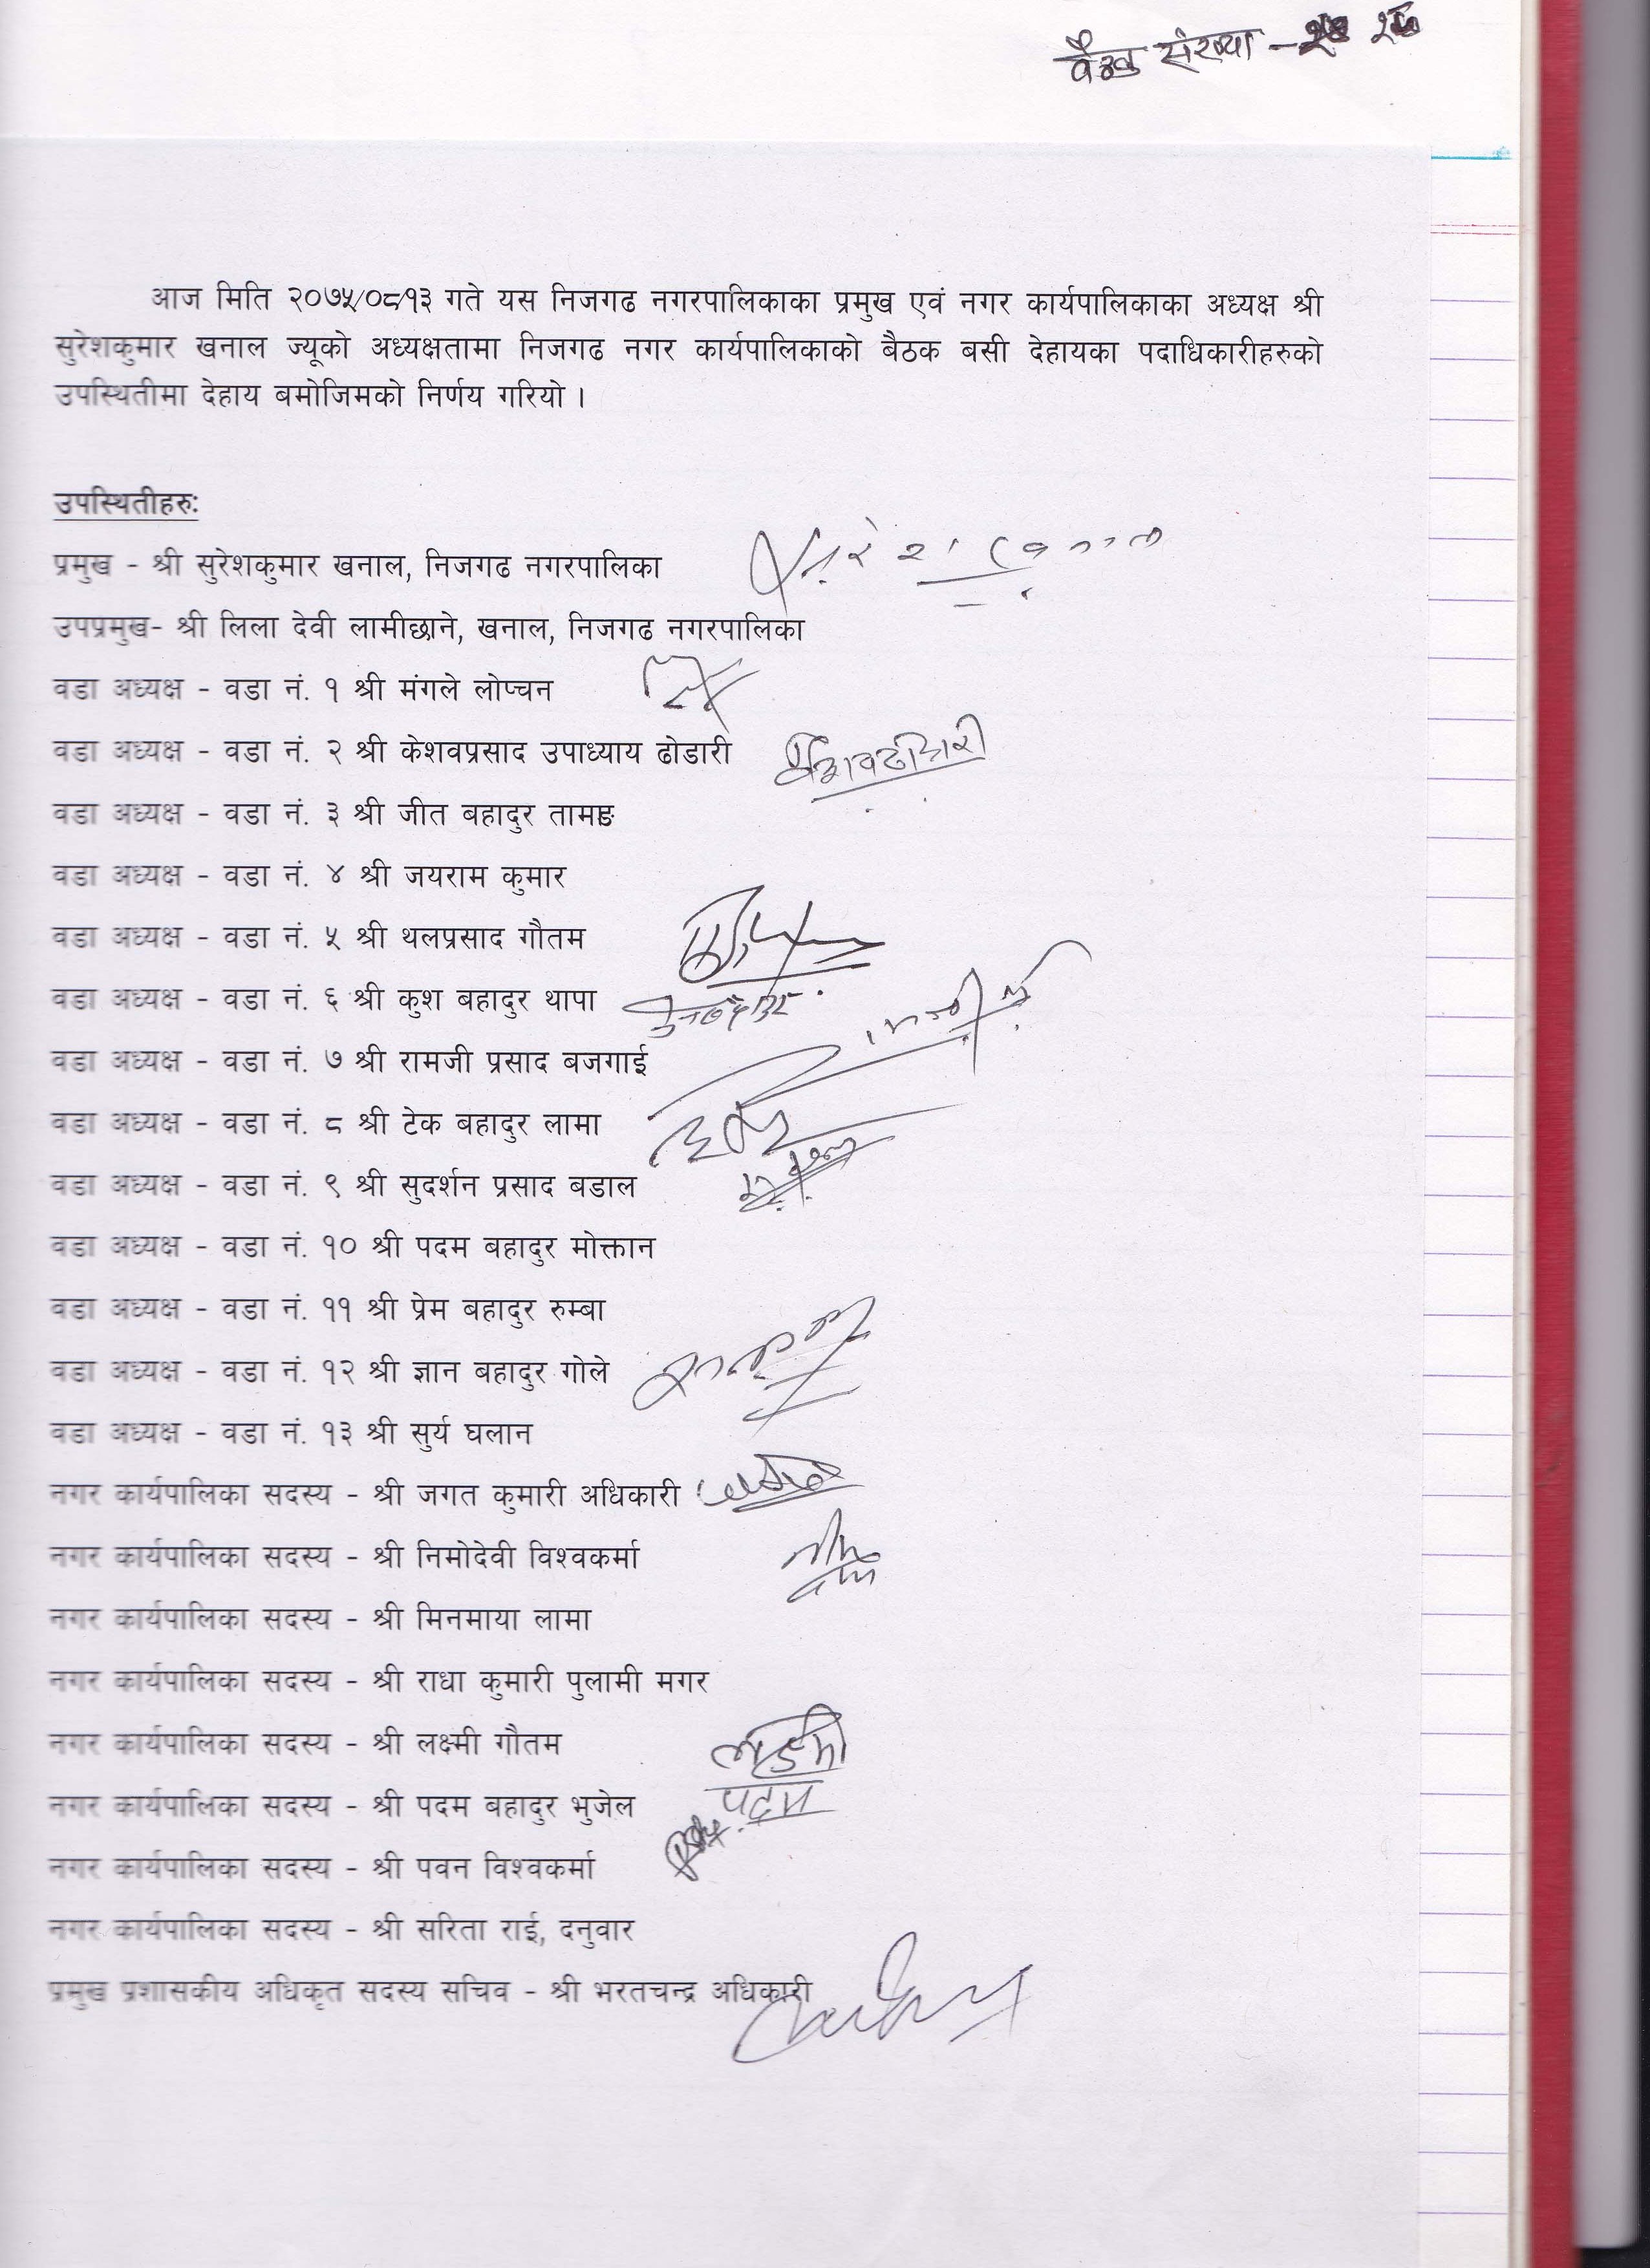 बैठक संख्या -
आज मिति २०७५/०८/१३ गते यस निजगढ नगरपालिकाका प्रमुख एवं नगर कार्यपालिकाका अध्यक्ष श्री
सुरेशकुमार खनाल ज्यूको अध्यक्षतामा निजगढ नगर कार्यपालिकाको बैठक बसी देहायका पदाधिकारीहरुको
उपस्थितीमा देहाय बमोजिमको निर्णय गरियो ।
उपस्थितीहरुः
प्रमुख - श्री सुरेशकुमार खनाल, निजगढ नगरपालिका
उपप्रमुख- श्री लिला देवी लामीछाने, खनाल, निजगढ नगरपालिका
वडा अध्यक्ष - वडा नं. १ श्री मंगले लोप्चन
वडा अध्यक्ष - वडा नं. २ श्री केशवप्रसाद उपाध्याय ढोडारी
वडा अध्यक्ष - वडा नं. ३ श्री जीत बहादुर तामाङ
वडा अध्यक्ष - वडा नं. ४ श्री जयराम कुमार
वडा अध्यक्ष - वडा नं. ५ श्री थलप्रसाद गौतम
वडा अध्यक्ष - वडा नं. ६ श्री कुश बहादुर थापा
वडा अध्यक्ष - वडा नं. ७ श्री रामजी प्रसाद बजगाई
वडा अध्यक्ष - वडा नं. ८ श्री टेक बहादुर लामा
वडा अध्यक्ष - वडा नं. ९ श्री सुदर्शन प्रसाद बडाल
वडा अध्यक्ष - वडा नं. १० श्री पदम बहादुर मोक्तान
वडा अध्यक्ष - वडा नं. ११ श्री प्रेम बहादुर रुम्बा
वडा अध्यक्ष - वडा नं. १२ श्री ज्ञान बहादुर गोले
वडा अध्यक्ष - वडा नं. १३ श्री सुर्य घलान
नगर कार्यपालिका सदस्य - श्री जगत कुमारी अधिकारी
नगर कार्यपालिका सदस्य - श्री निमोदेवी विश्वकर्मा
नगर कार्यपालिका सदस्य - श्री मिनमाया लामा
नगर कार्यपालिका सदस्य - श्री राधा कुमारी पुलामी मगर
नगर कार्यपालिका सदस्य - श्री लक्ष्मी गौतम लक्ष्मी
नगर कार्यपालिका सदस्य - श्री पदम बहादुर भुजेल पदम
नगर कार्यपालिका सदस्य - श्री पवन विश्वकर्मा
नगर कार्यपालिका सदस्य - श्री सरिता राई, दनुवार
प्रमुख प्रशासकीय अधिकृत सदस्य सचिव - श्री भरतचन्द्र अधिकारी